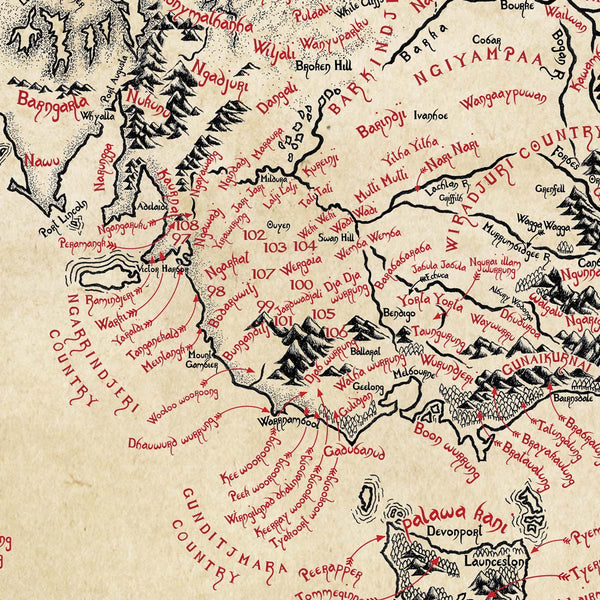 Puldali
White Cliffs
Bourke
Wailwan
Wiljali
Wanyuparlku
Broken Hill
BARKINDJI
Barna
Cobar
Bogan R
NGIYAMPAA
Ngadjuri
Danggali
Port Augusta
Barngarla
Whyalla
Nukunu
Wangaaypuwan
Barindji
Ivanhoe
Nawu
Narungga
Maraura
Kureinji
Yitha Yitha
Nari Nari
WIRADJURI COUNTRY
Forbes
Kaurna
Ngayawang
Mildura
Jari Jari
Latji Latji
Tati Tati
Mutti Mutti
Lachlan R.
Griffith
Grenfell
Port Lincoln
Adelaide
Ngangaruku
Peramangk
108
97
Ngarkat
102
Ouyen
103
104
Weki Weki
Wadi Wadi
Swan Hill
Wemba Wemba
Murrumbidgee R.
Wagga Wagga
Victor Harbor
Ramindjeri
Warki
Yaraldi
Tanganekald
Meintangk
NGARRINDJERI
COUNTRY
107
Wergaia
98
Bodaruwitj
100
Jardwadjali
Dja Dja
wurrung
Barababaraba
Jabula Jabula
Echuca
Ngurai illam
wurrung
Yorta Yorta
Albury Wodonga
Dhudhuroa
Waywurru
Bendigo
99
101
105
106
Bungandidj
Mount
Gambier
Djab wurrung
Ballarat
Watha wurrung
Taungurung
Wurundjeri
GUNAIKURNAI
Geelong
Melbourne
Gulidjan
Bairnsdale
Wooloo woorong
Dhauwurd wurrung
Warrnambool
Gadubanud
Boon wurrung
Brabralung
Tatungalung
Brayakaulung
Bratauolung
Kee woorong
Peek woorong
Wirngilgnad dhalinanong
Keerray woorong
Tyakoort woorong
GUNDITJMARA
COUNTRY
palawa kani
Devonport
Launceston
Peerapper
Tommeginne